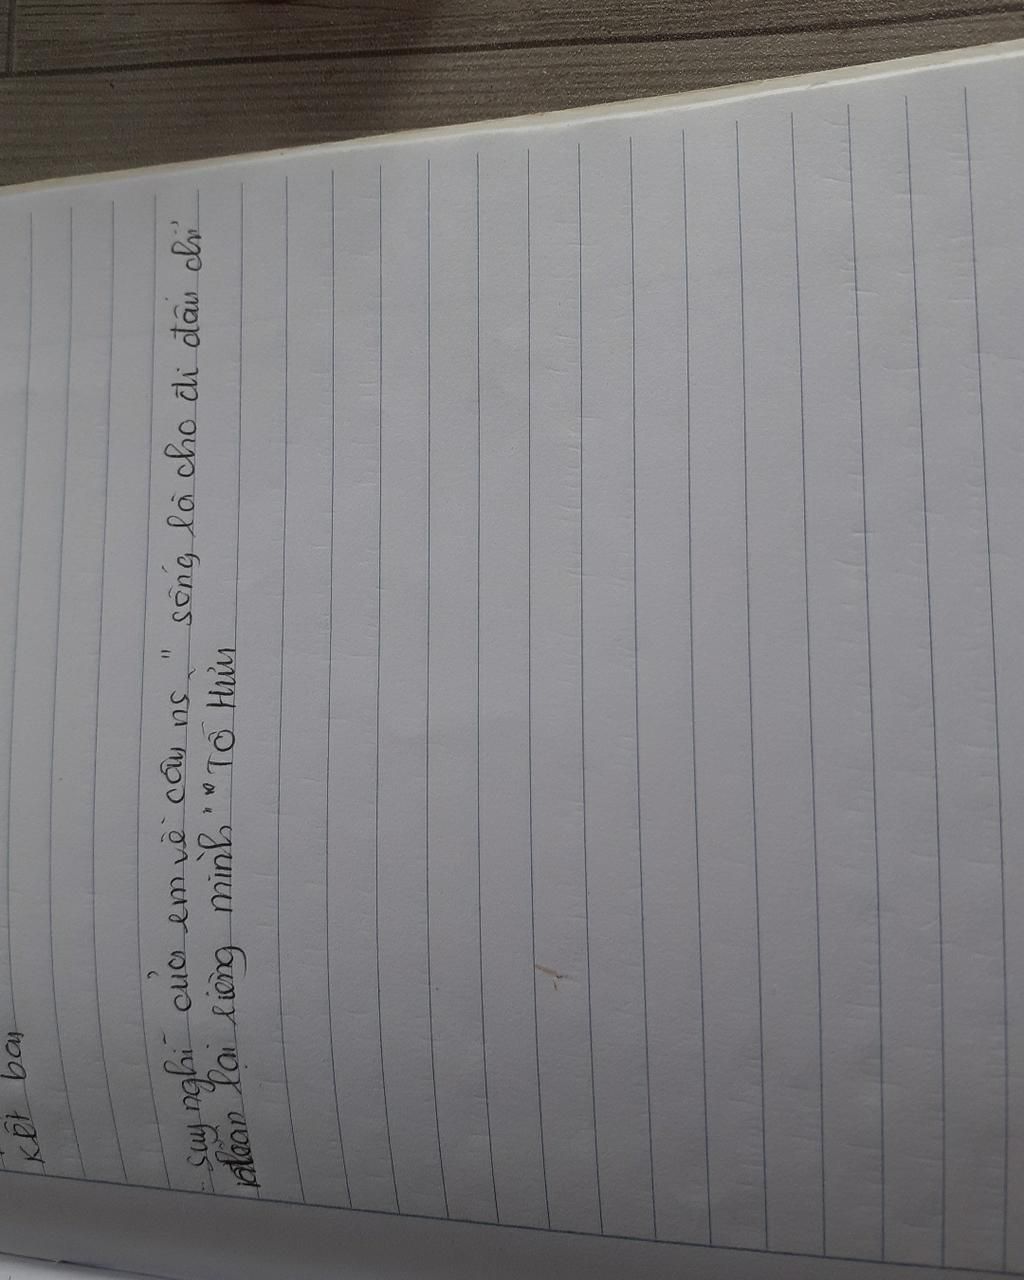 Kết bay
. Suy nghĩ của em về câu ns " sống là cho đi đâu chỉ
nhận lại riêng mình" " Tố Hữu